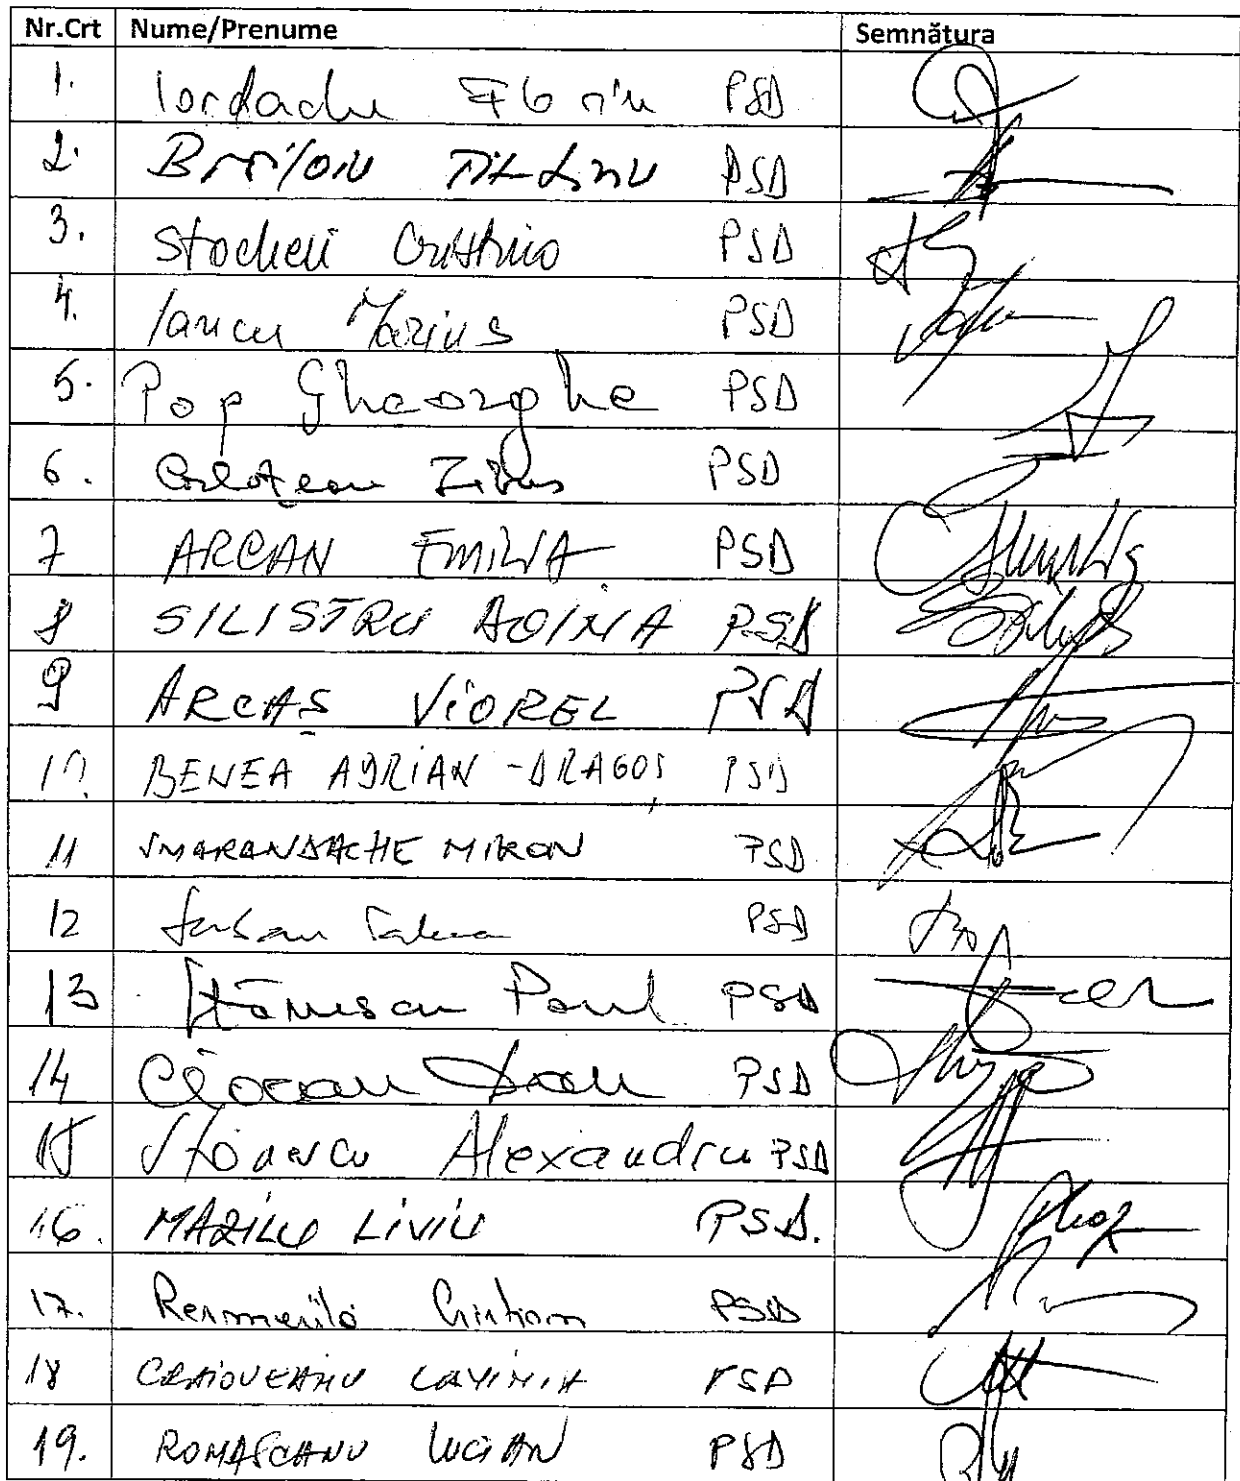 Nr.Crt Nume/Prenume Semnătura
1. Iordache Florin PSD
2. Brăiloiu Tit-Liviu PSD
3. Stocheci Cristina PSD
4. Iancu Marius PSD
5. Pop Gheorghe PSD
6. PSD
7 ARCAN EMILIA PSD
8 SILISTRU DOINA PSD
9 ARCAȘ VIOREL PSD
10 BENEA ADRIAN-DRAGOȘ PSD
11 SMARANDACHE MIRON PSD
12 PSD
13 Stănescu Paul PSD
14 Ciocan Dan PSD
15 Stoiancu Alexandru PSD
16. MAZILU LIVIU PSD.
17. Resmeriță Cristian PSD
18 CRAIOVEANU LAVINIA PSD
19. ROMAȘCANU LUCIAN PSD